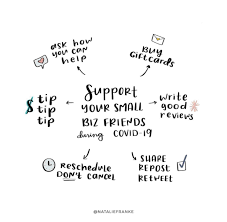 ask how
you can
help
BUY
GIFTCARDS
$ tip
tip
tip
SUPPORT
YOUR SMALL
BIZ FRIENDS
during COVID-19
write
good
reviews
RESCHEDULE
DON'T CANCEL
SHARE
REPOST
RETWEET
@NATALIEFRANKE